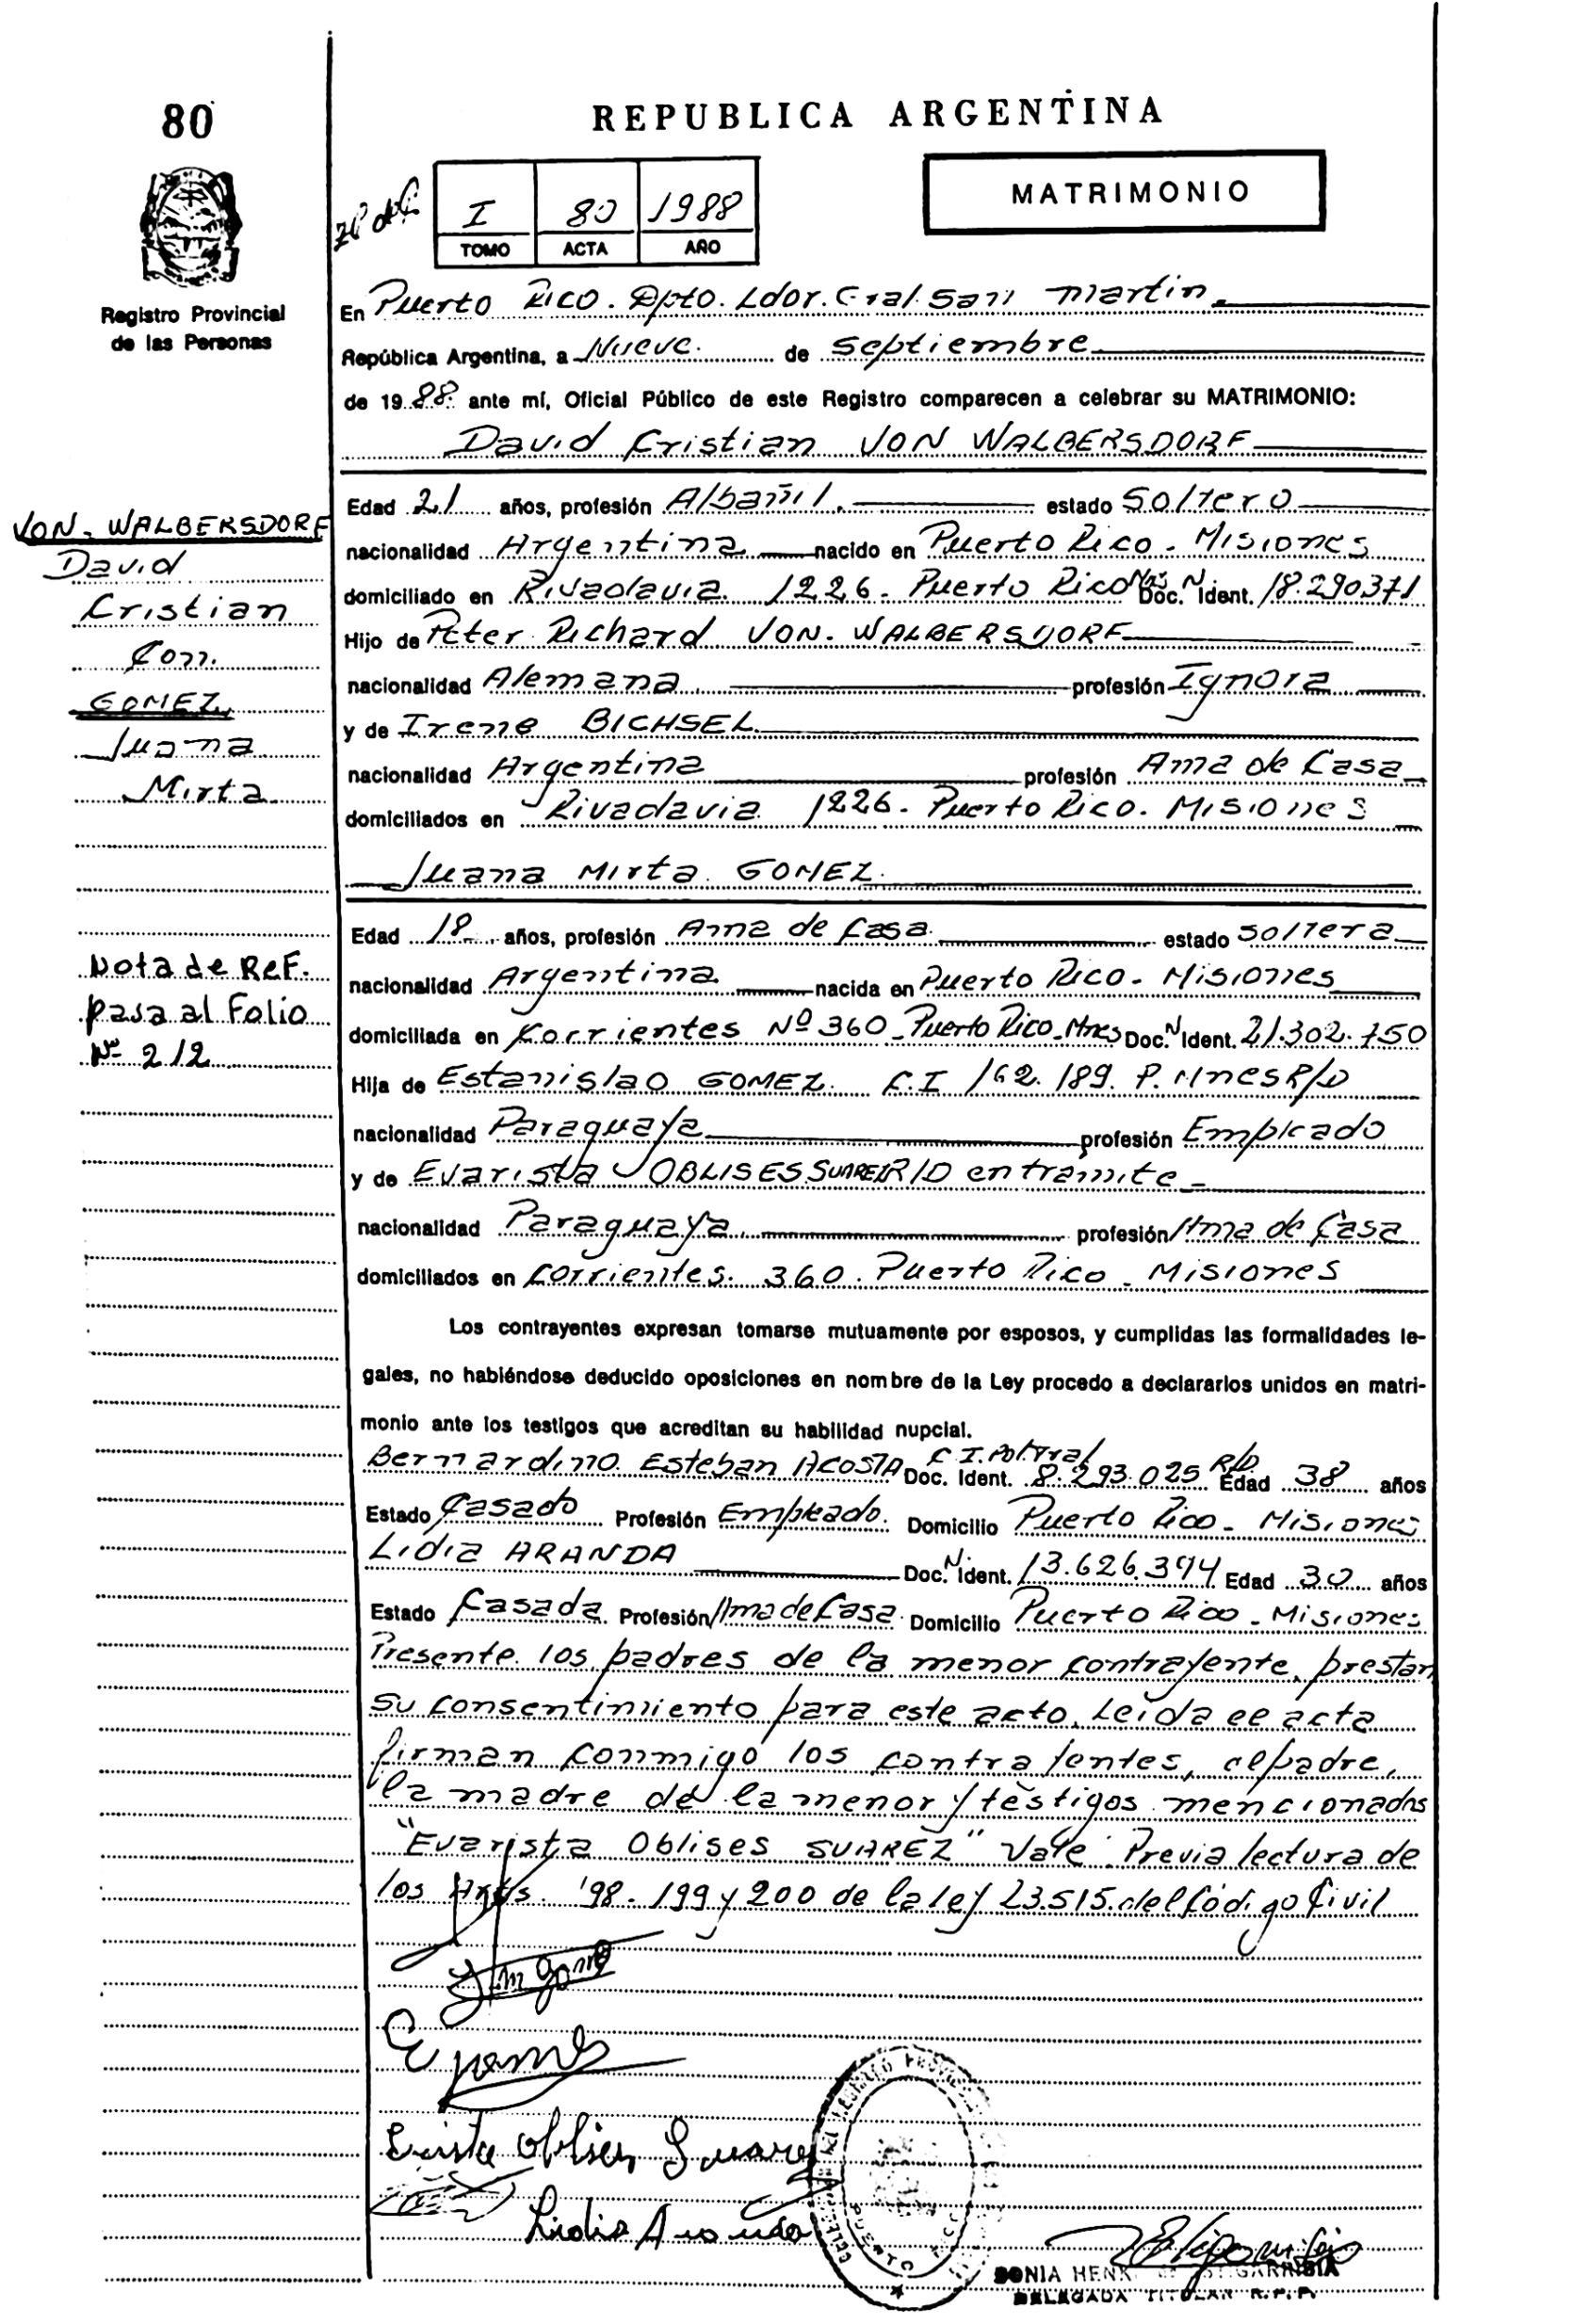 80
REPUBLICA ARGENTINA
I 80 1988
TOMO ACTA AÑO
MATRIMONIO
Registro Provincial
de las Personas
En Puerto Rico. Dpto. Ldor. Gral. San Martin.
República Argentina, a Nueve. de Septiembre
de 19 88. ante mí, Oficial Público de este Registro comparecen a celebrar su MATRIMONIO:
David Cristian VON WALBERSDORF
VON. WALBERSDORF
David
Cristian
Con.
GOMEZ
Juana
Mirta
Nota de Ref.
pasa al Folio
Nº 212
Edad 21 años, profesión Albañil. estado Soltero
nacionalidad Argentina nacido en Puerto Rico. Misiones
domiciliado en Rivadavia 1226. Puerto Rico Mnes Doc. N Ident. 18.290371
Hijo de Peter Richard VON. WALBERSDORF
nacionalidad Alemana profesión Ignora
y de Irene BICHSEL
nacionalidad Argentina profesión Ama de Casa
domiciliados en Rivadavia 1226. Puerto Rico. Misiones
Juana Mirta GOMEZ.
Edad 18 años, profesión Ama de Casa estado Soltera
nacionalidad Argentina nacida en Puerto Rico. Misiones
domiciliada en Corrientes Nº 360 Puerto Rico. Mnes Doc. N Ident. 21.302.750
Hija de Estanislao GOMEZ C.I 162.189. P. Mnes R/D
nacionalidad Paraguaya profesión Empleado
y de Evarista OBLISES SUAREZ R/D en tramite
nacionalidad Paraguaya. profesión Ama de Casa
domiciliados en Corrientes. 360. Puerto Rico. Misiones
Los contrayentes expresan tomarse mutuamente por esposos, y cumplidas las formalidades le-
gales, no habiéndose deducido oposiciones en nombre de la Ley procedo a declararlos unidos en matri-
monio ante los testigos que acreditan su habilidad nupcial.
Bernardino Esteban ACOSTA Doc. Ident. C.I. Pol. 8.293.025 R/D Edad 38 años
Estado Casado Profesión Empleado. Domicilio Puerto Rico. Misiones
Lidia ARANDA Doc. N. Ident. 13.626.394 Edad 30 años
Estado Casada Profesión Ama de Casa Domicilio Puerto Rico. Misiones
Presente los padres de la menor contrayente, prestan
su consentimiento para este acto. Leída el acta
firman conmigo los contrayentes, el padre,
la madre de la menor y testigos mencionados
"Evarista Oblises SUAREZ" Vale. Previa lectura de
los Arts. 198. 199 y 200 de la ley 23.515. del Código Civil
Evarista Oblises Suarez
Lidia Aranda
PUERTO RICO
SONIA HENK
DELEGADA TITULAR R.P.P.